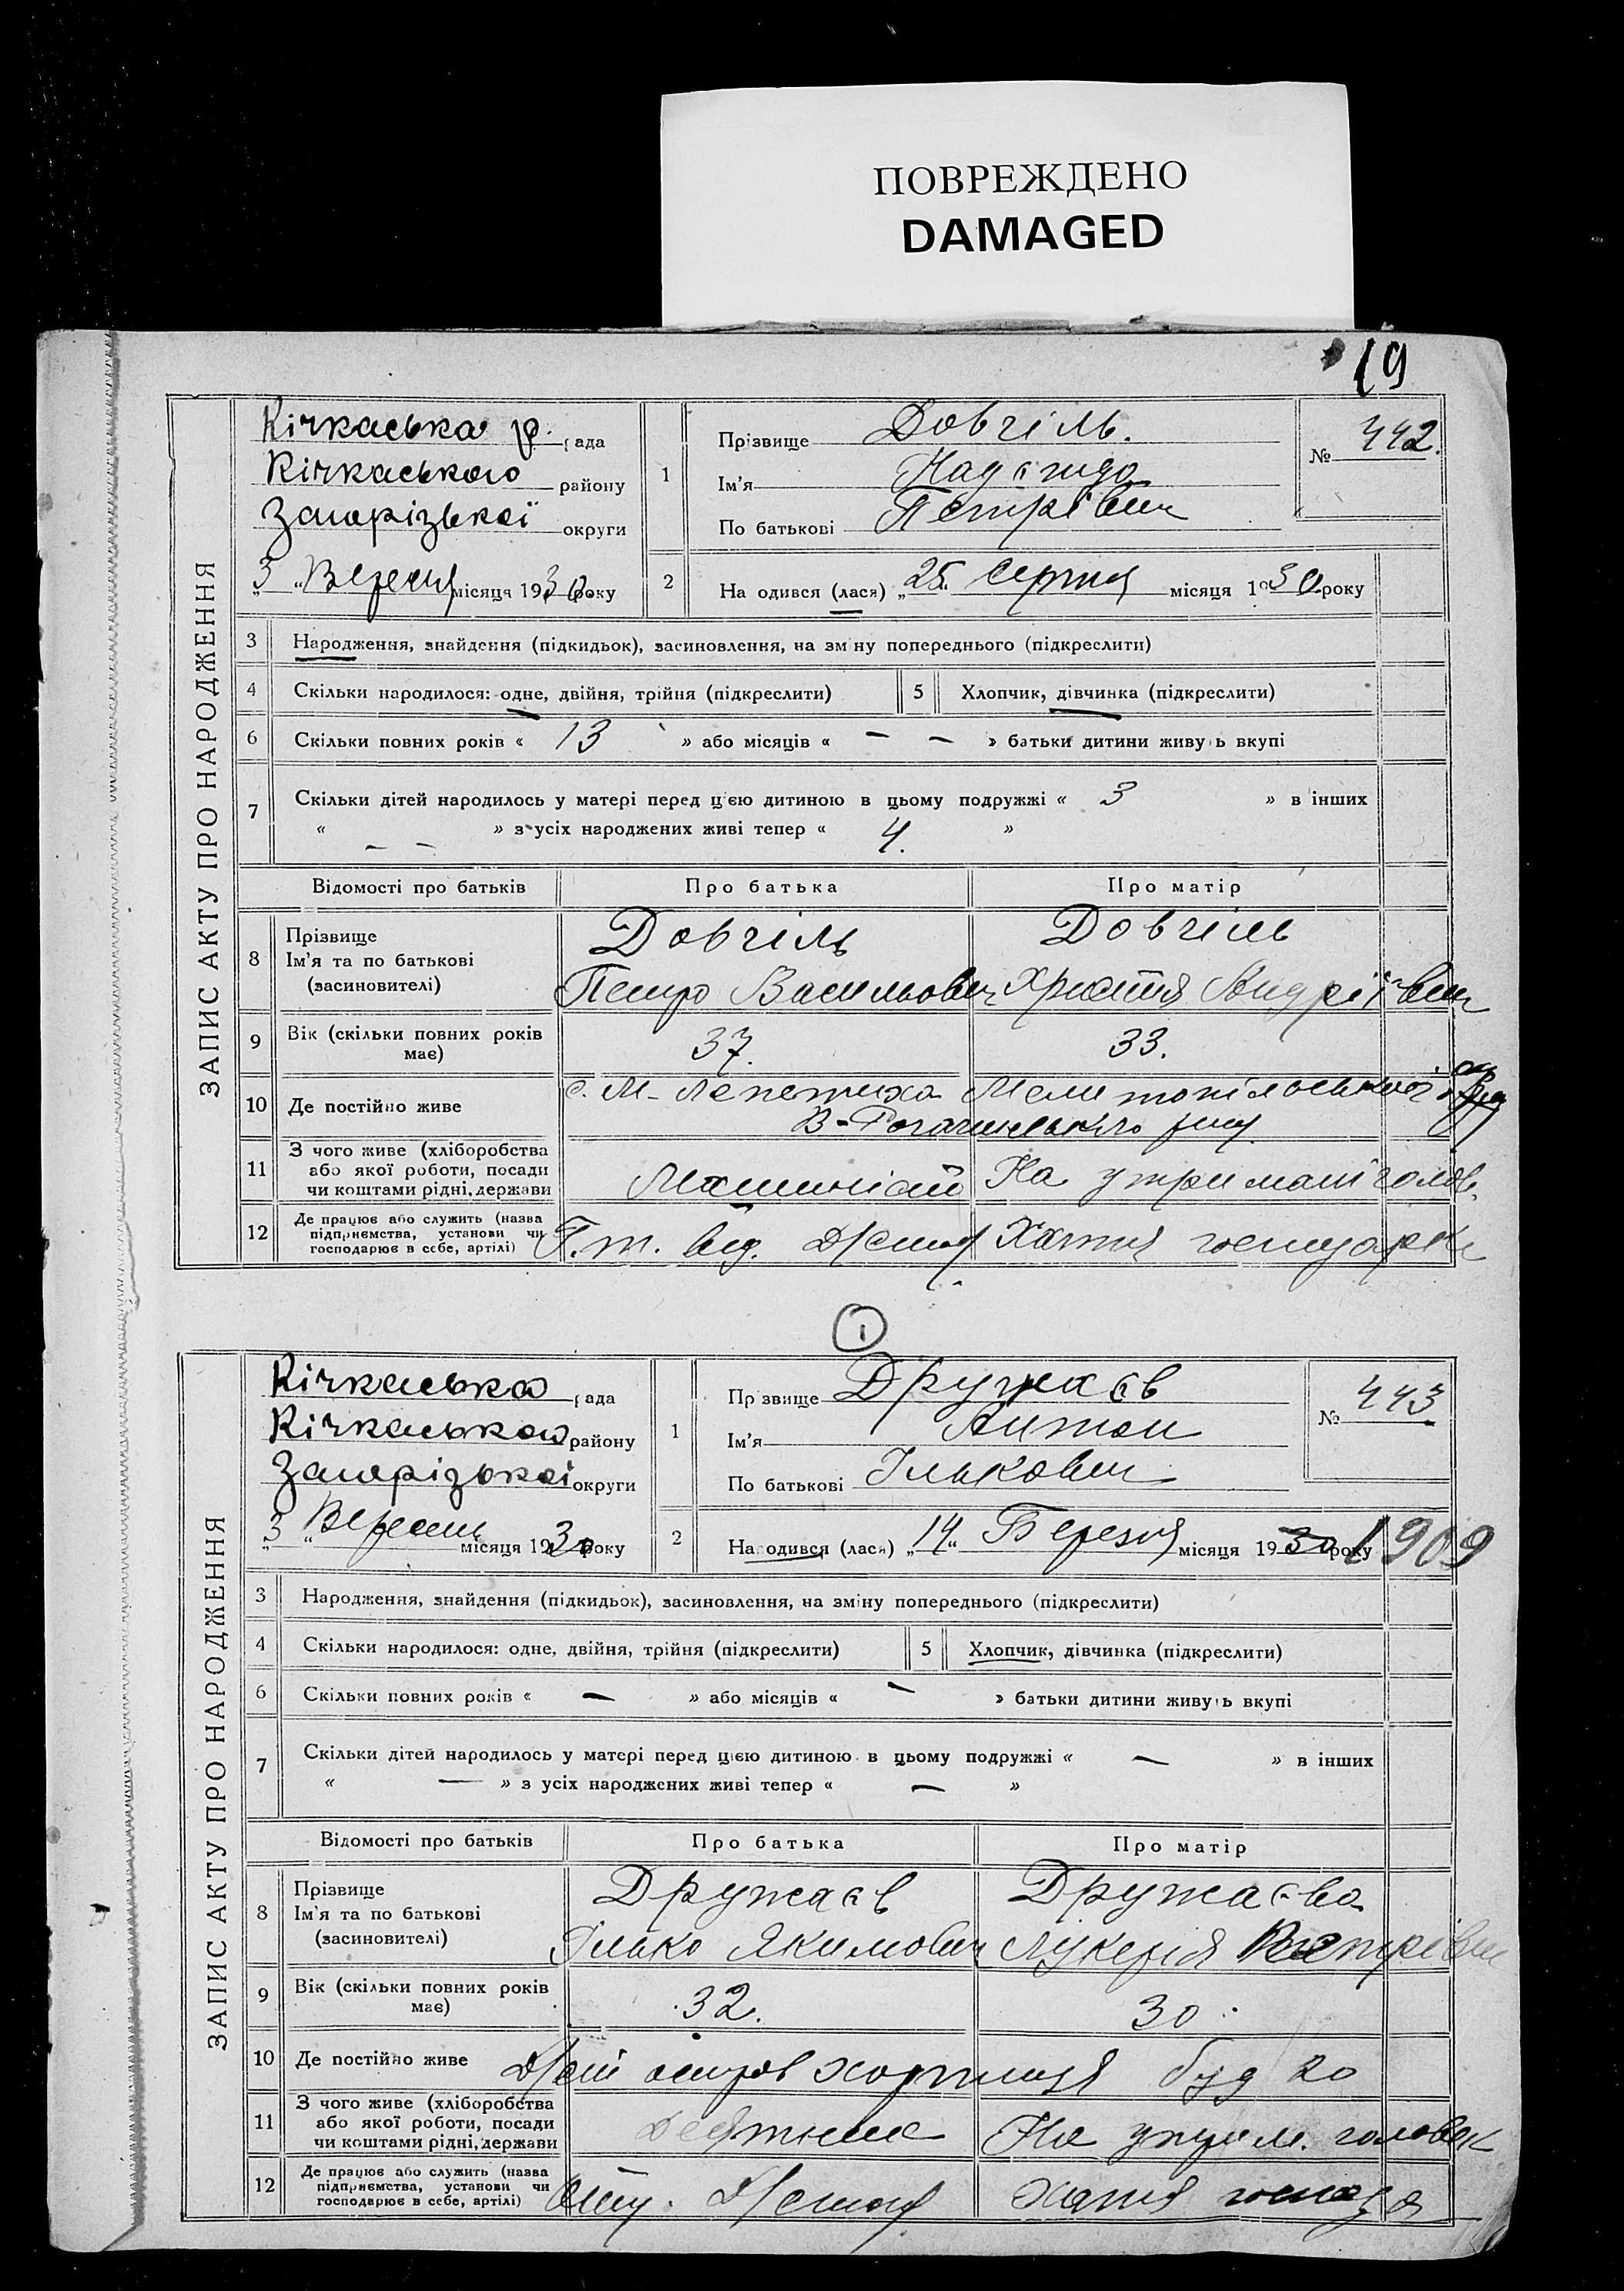 ПОВРЕЖДЕНО
DAMAGED
19
ЗАПИС АКТУ ПРО НАРОДЖЕННЯ
Кічкаська р. рада
Кічкаського району
Запорізької округи
„3“ Вересня місяця 1930 року
1 Прізвище Довгіль.
Ім'я Надєжда
По батькові Петрівна
№ 442.
2 На одився (лася) „25“ Серпня місяця 1930 року
3 Народження, знайдення (підкидьок), засиновлення, на зміну попереднього (підкреслити)
4 Скільки народилося: одне, двійня, трійня (підкреслити) 5 Хлопчик, дівчинка (підкреслити)
6 Скільки повних років « 13 » або місяців « — — » батьки дитини живуть вкупі
7 Скільки дітей народилось у матері перед цією дитиною в цьому подружжі « 3 » в інших
« — — » з усіх народжених живі тепер « 4. »
Відомості про батьків Про батька Про матір
8 Прізвище
Ім'я та по батькові
(засиновителі)
Довгіль Довгіль
Петро Васильович Христя Андріївна
9 Вік (скільки повних років має) 37. 33.
10 Де постійно живе с. М-Лепетиха Мелитопільської окр
В-Рогачинського
11 З чого живе (хліборобства
або якої роботи, посади
чи коштами рідні, держави
Машиніст На утримані голов.
12 Де працює або служить (назва
підприємства, установи чи
господарює в себе, артілі)
П.т. від. Хатня господарка
1
ЗАПИС АКТУ ПРО НАРОДЖЕННЯ
Кічкаська рада
Кічкаського району
Запорізької округи
„3“ Вересня місяця 1930 року
1 Пр звище Дружаєв
Ім'я Антон
По батькові Ількович
№ 443
2 Народився (лася) „14“ Березня місяця 1930 року 1909
3 Народження, знайдення (підкидьок), засиновлення, на зміну попереднього (підкреслити)
4 Скільки народилося: одне, двійня, трійня (підкреслити) 5 Хлопчик, дівчинка (підкреслити)
6 Скільки повних років « — » або місяців « — » батьки дитини живуть вкупі
7 Скільки дітей народилось у матері перед цією дитиною в цьому подружжі « — » в інших
« — » з усіх народжених живі тепер « — »
Відомості про батьків Про батька Про матір
8 Прізвище
Ім'я та по батькові
(засиновителі)
Дружаєв Дружаєва
Ілько Якимович Лукерія Петрівна
9 Вік (скільки повних років має) 32. 30.
10 Де постійно живе острів Хортиця буд 20
11 З чого живе (хліборобства
або якої роботи, посади
чи коштами рідні, держави
На утрим. головок
12 Де працює або служить (назва
підприємства, установи чи
господарює в себе, артілі)
Хатня